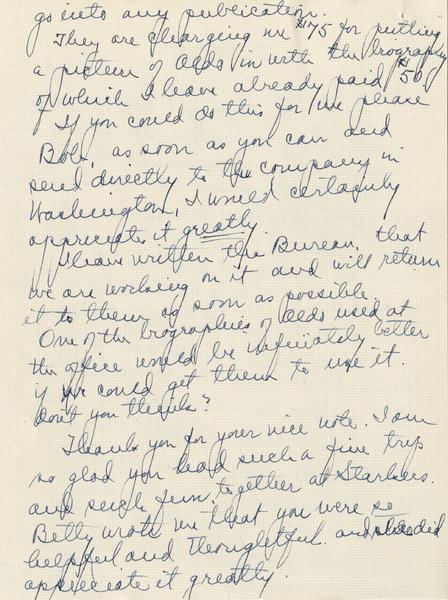 go into any publication.
They are charging me $75 for putting
a picture of Olds in with the biography
of which I have already paid $50.
If you could do this for me please
Bob, as soon as you can and
send directly to the company in
Washington, I would certainly
appreciate it greatly.
I have written the Bureau, that
we are working on it and will return
it to them as soon as possible.
One of the biographies of Olds used at
the office would be infinitely better
if we could get them to use it.
Don't you think?
Thank you for your nice note. I am
so glad you had such a fine trip
and such fun, together at
Betty wrote me that you were so
helpful and thoughtful. and she did
appreciate it greatly.